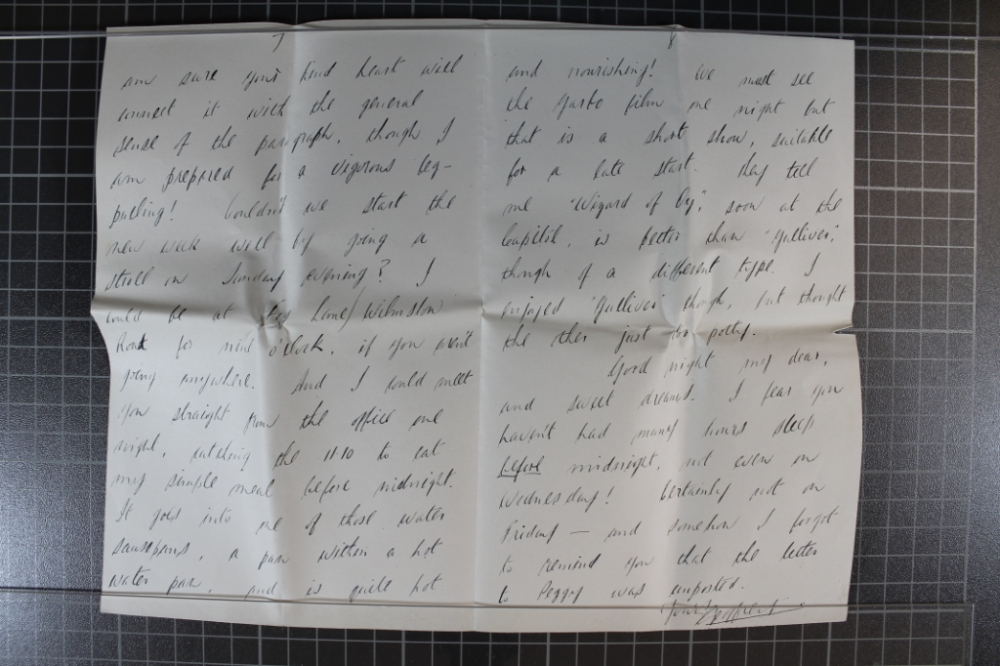 7
am sure your kind heart will
connect it with the general
sense of the paragraph, though I
am prepared for a vigorous leg-
pulling! Couldn't we start the
new week well by going a
stroll on Sunday evening? I
could be at Stag Lane/Wilmslow
Road for nine o'clock, if you aren't
going anywhere. And I could meet
you straight from the office one
night, catching the 11.10 to eat
my simple meal before midnight.
It goes into one of those water
saucepans, a pan within a hot
water pan, and is quite hot
8
and nourishing! We must see
the Garbo film one night but
that is a short show, suitable
for a late start. They tell
me "Wizard of Oz", soon at the
Capitol, is better than "Gulliver",
though of a different type. I
enjoyed "Gulliver" though, but thought
the other just too potty.
Good night my dear,
and sweet dreams. I fear you
haven't had many hours sleep
before midnight, not even on
Wednesday! Certainly not on
Friday — and somehow I forgot
to remind you that the letter
to Peggy was unposted.
Yours